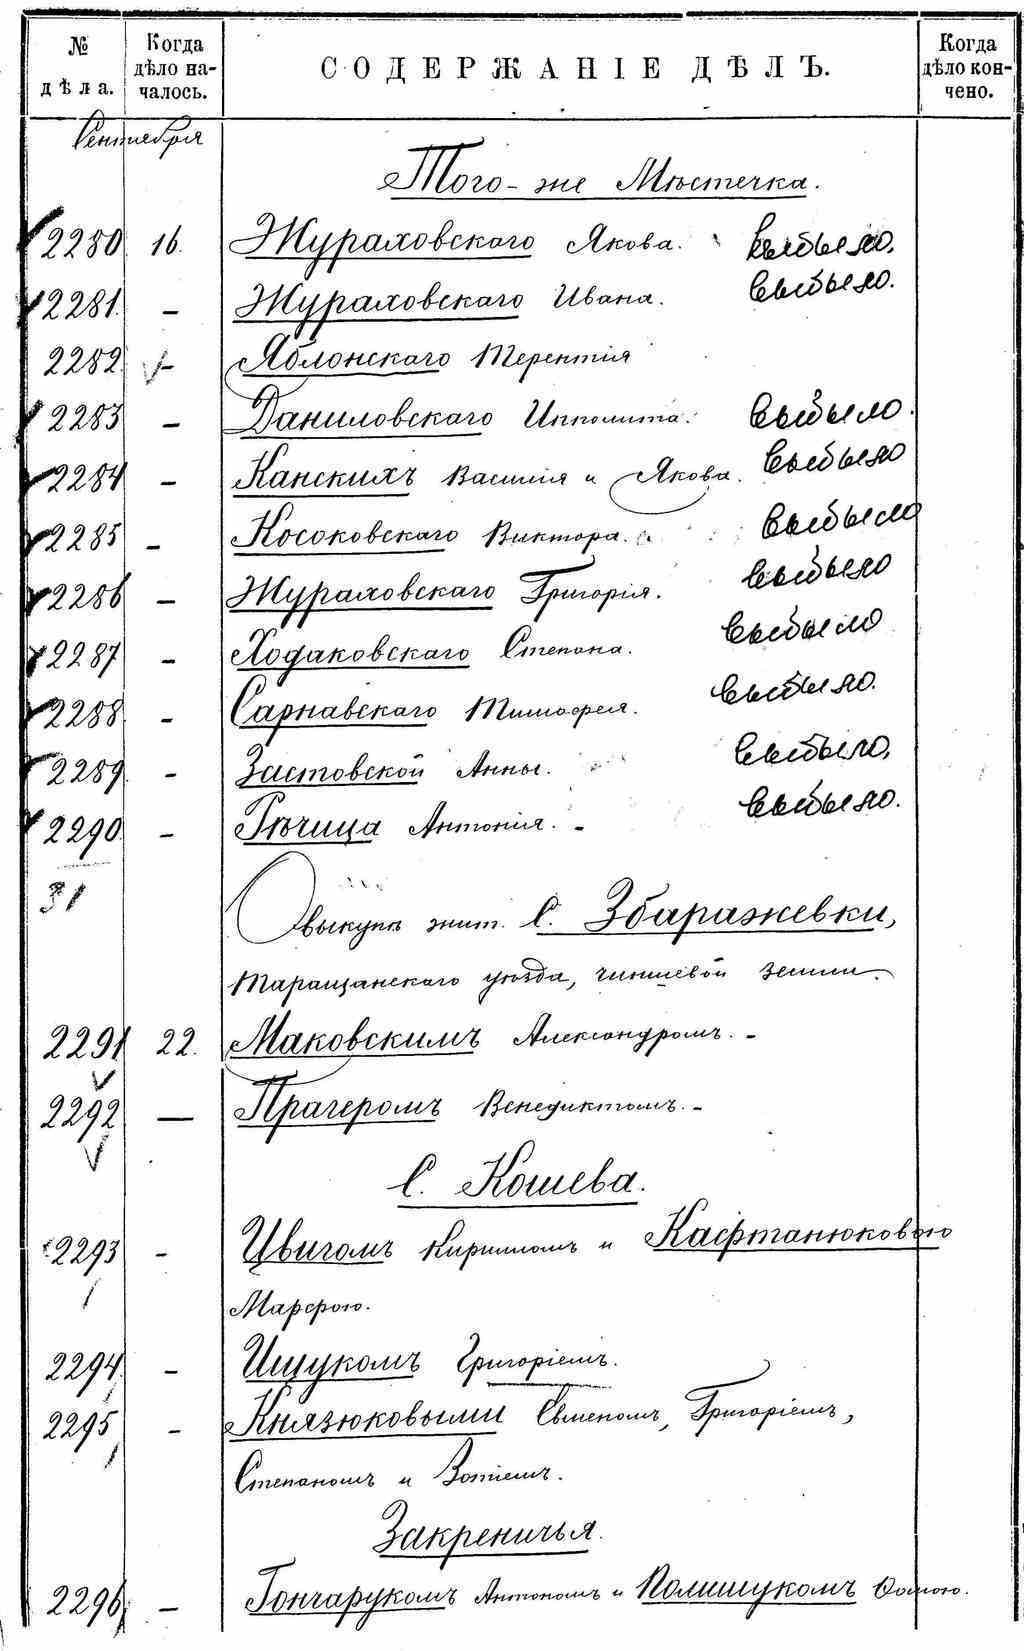 № дѣла. Когда дѣло началось. СОДЕРЖАНІЕ ДѢЛЪ. Когда дѣло кончено.
Сентября
Того-же Мѣстечка.
2280 16. Жураховскаго Якова. выбыло.
2281. – Жураховскаго Ивана. выбыло.
2282. – Яблонскаго Терентія
2283 – Даниловскаго Ипполита. выбыло.
2284 – Канскихъ Василія и Якова. выбыло
2285 – Косоковскаго Виктора. выбыло
2286 – Жураховскаго Григорія. выбыло
2287 – Ходаковскаго Степана. выбыло
2288. – Сарнавскаго Тимофея. выбыло.
2289. – Застовской Анны. выбыло,
2290 – Рѣчица Антонія. – выбыло.
31
О выкупѣ жит. С. Збаражевки,
Таращанскаго уѣзда, чиншевой земли.
2291 22. Маковскимъ Александромъ. –
2292 — Прагеромъ Венедиктомъ. –
С. Кошева.
2293 – Цвигомъ Кирилломъ и Кафтанюковою
Марфою.
2294 – Ищукомъ Григоріемъ.
2295 – Князюковыми Семеномъ, Григоріемъ,
Степаномъ и
Закреничья.
2296 – Гончарукомъ Антономъ и Полищукомъ Фомою.